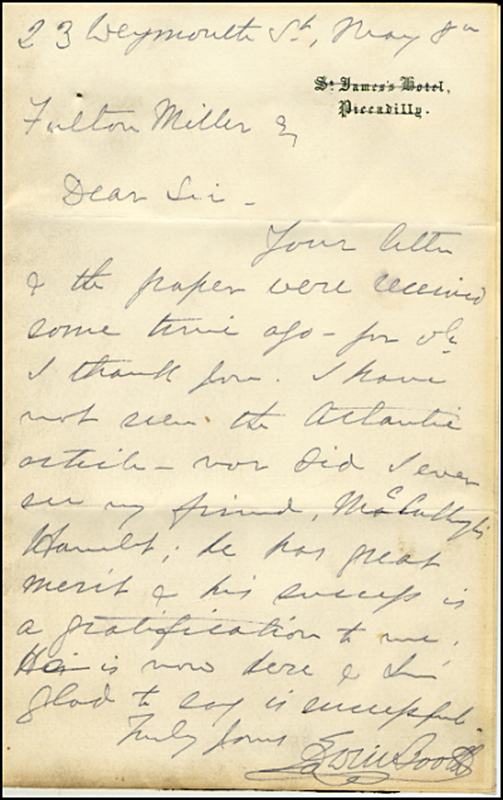 23 Weymouth St, May 8th
St. James's Hotel,
Piccadilly.
Fulton Miller
Dear Sir -
Your letter
& the paper were received
some time ago - for wh
I thank you. I have
not seen the Atlantic
article - nor did I ever
see my friend, McCullough's
Hamlet; he has great
merit & his success is
a gratification to me.
He is now here & I'm
glad to say is successful
Truly yours Edwin Booth